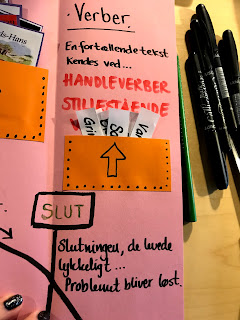 Verber.
En fortællende tekst
Kendes ved...
HANDLEVERBER
STILLESTÅENDE
ds-Hans
SLUT
Slutningen, de levede
lykkeligt...
Problemet bliver løst.